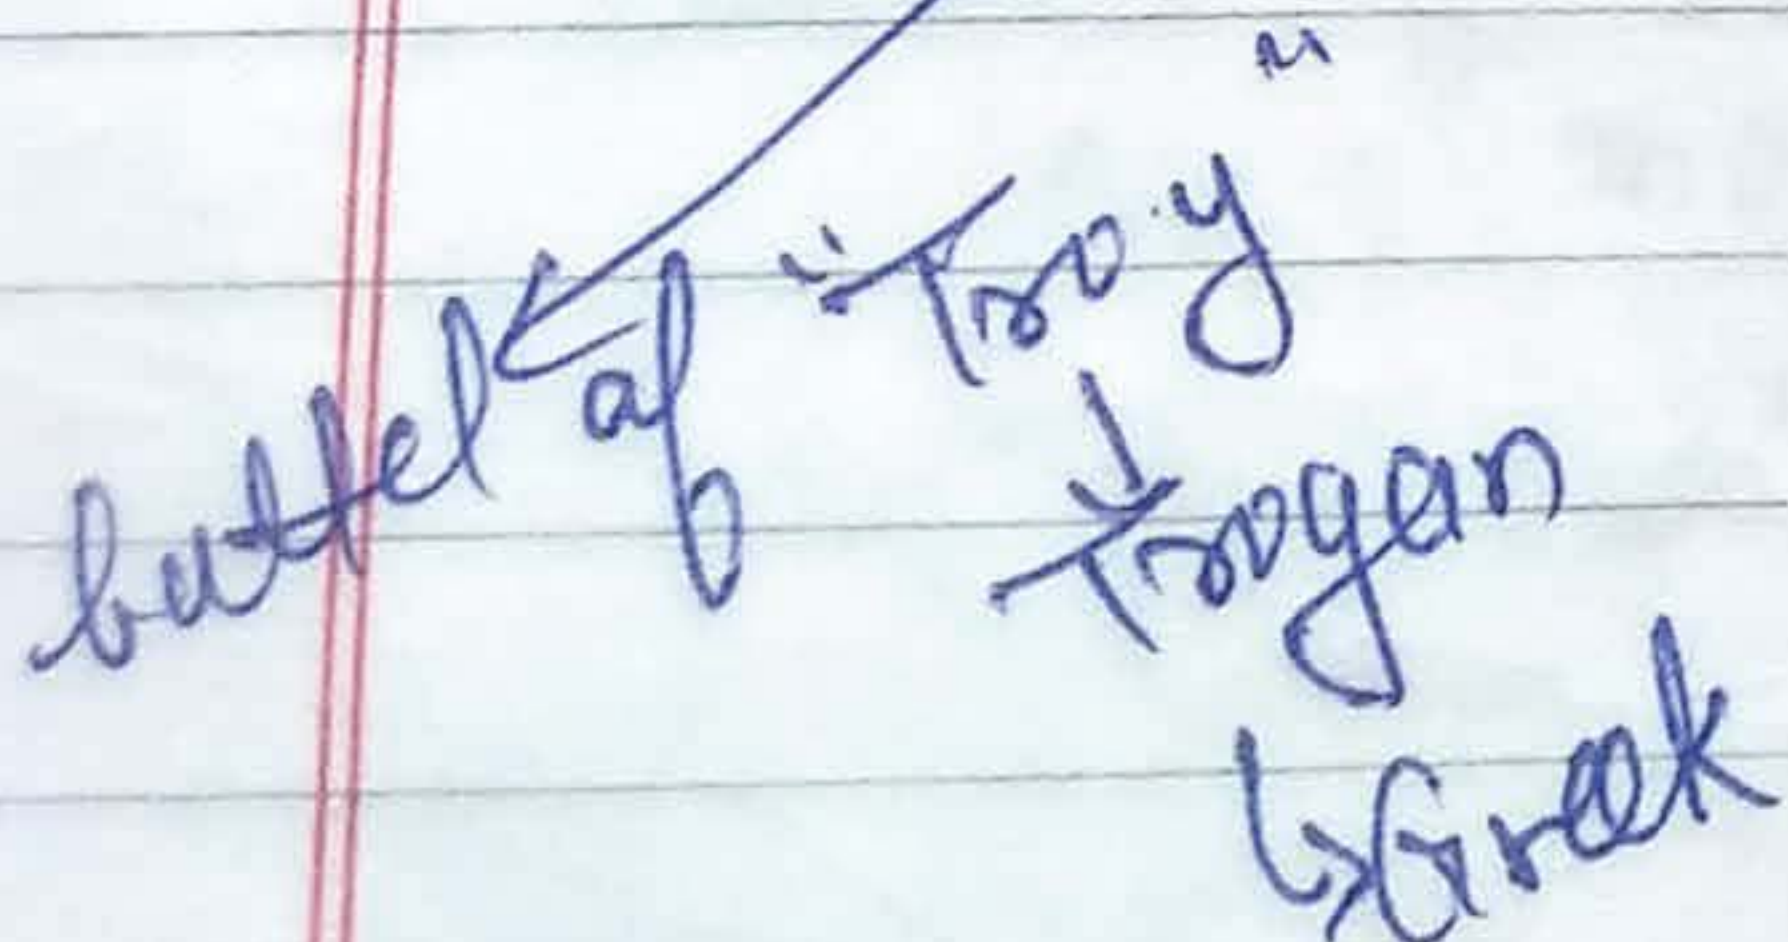 buttel of "Troy"
Trogan
Greek